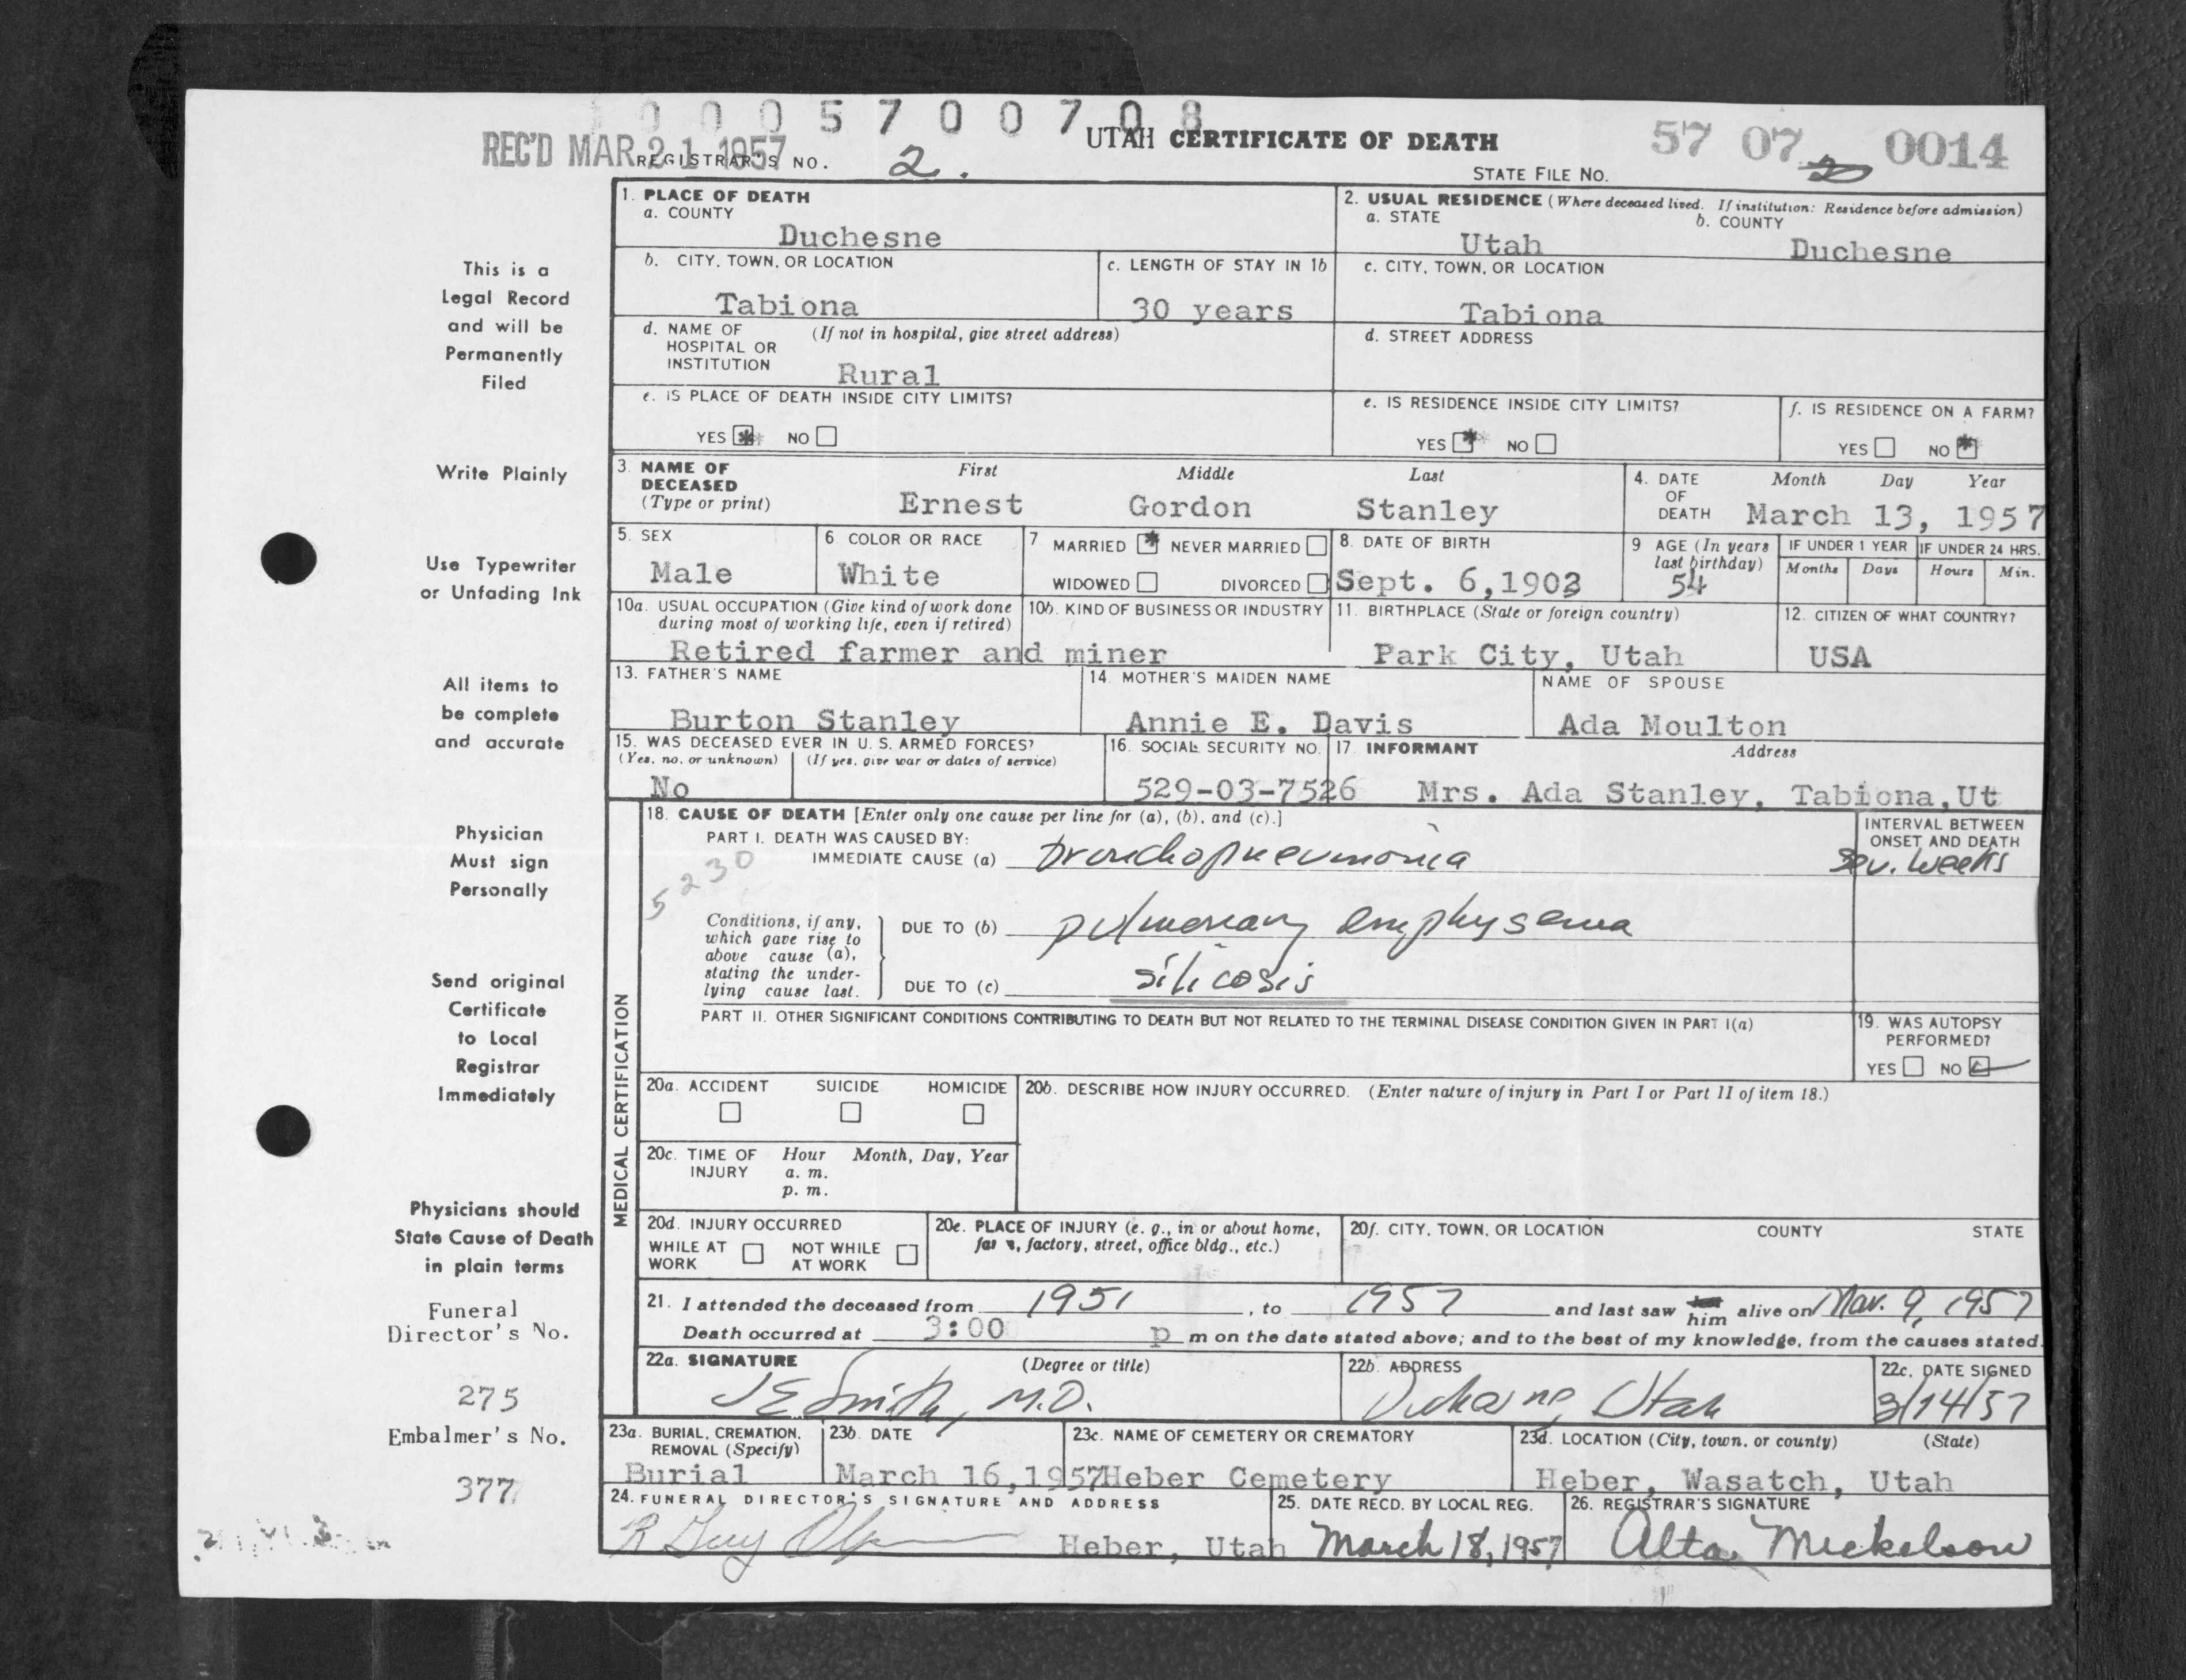 1 0 0 0 5 7 0 0 7 0 8
REC'D MAR 21 1957 REGISTRAR'S NO. 2.
UTAH CERTIFICATE OF DEATH
STATE FILE No. 57 07 0014
1. PLACE OF DEATH
a. COUNTY
Duchesne
2. USUAL RESIDENCE (Where deceased lived. If institution: Residence before admission)
a. STATE b. COUNTY
Utah Duchesne
b. CITY, TOWN, OR LOCATION
Tabiona
c. LENGTH OF STAY IN 1b
30 years
c. CITY, TOWN, OR LOCATION
Tabiona
d. NAME OF (If not in hospital, give street address)
HOSPITAL OR
INSTITUTION
Rural
d. STREET ADDRESS
e. IS PLACE OF DEATH INSIDE CITY LIMITS?
YES * NO
e. IS RESIDENCE INSIDE CITY LIMITS?
YES * NO
f. IS RESIDENCE ON A FARM?
YES NO *
3. NAME OF DECEASED (Type or print)
First Middle Last
Ernest Gordon Stanley
4. DATE OF DEATH
Month Day Year
March 13, 1957
5. SEX
Male
6. COLOR OR RACE
White
7 MARRIED * NEVER MARRIED
WIDOWED DIVORCED
8. DATE OF BIRTH
Sept. 6,1903
9 AGE (In years
last birthday)
54
IF UNDER 1 YEAR IF UNDER 24 HRS.
Months Days Hours Min.
10a. USUAL OCCUPATION (Give kind of work done
during most of working life, even if retired)
10b. KIND OF BUSINESS OR INDUSTRY
Retired farmer and miner
11. BIRTHPLACE (State or foreign country)
Park City, Utah
12. CITIZEN OF WHAT COUNTRY?
USA
13. FATHER'S NAME
Burton Stanley
14. MOTHER'S MAIDEN NAME
Annie E. Davis
NAME OF SPOUSE
Ada Moulton
15. WAS DECEASED EVER IN U. S. ARMED FORCES?
(Yes, no, or unknown) (If yes, give war or dates of service)
No
16. SOCIAL SECURITY NO.
529-03-7526
17. INFORMANT Address
Mrs. Ada Stanley, Tabiona,Ut
MEDICAL CERTIFICATION
18. CAUSE OF DEATH [Enter only one cause per line for (a), (b), and (c).]
PART I. DEATH WAS CAUSED BY:
IMMEDIATE CAUSE (a) bronchopneumonia
INTERVAL BETWEEN
ONSET AND DEATH
Sev. Weeks
5230
Conditions, if any,
which gave rise to
above cause (a),
stating the under-
lying cause last.
DUE TO (b) pulmonary emphysema
DUE TO (c) silicosis
PART II. OTHER SIGNIFICANT CONDITIONS CONTRIBUTING TO DEATH BUT NOT RELATED TO THE TERMINAL DISEASE CONDITION GIVEN IN PART I(a)
19. WAS AUTOPSY
PERFORMED?
YES NO
20a. ACCIDENT SUICIDE HOMICIDE
20b. DESCRIBE HOW INJURY OCCURRED. (Enter nature of injury in Part I or Part II of item 18.)
20c. TIME OF INJURY Hour Month, Day, Year
a. m.
p. m.
20d. INJURY OCCURRED
WHILE AT WORK NOT WHILE AT WORK
20e. PLACE OF INJURY (e. g., in or about home,
farm, factory, street, office bldg., etc.)
20f. CITY, TOWN, OR LOCATION COUNTY STATE
21. I attended the deceased from 1951, to 1957 and last saw him alive on Mar. 9, 1957
Death occurred at 3:00 p m on the date stated above; and to the best of my knowledge, from the causes stated.
22a. SIGNATURE (Degree or title)
J E Smith, M.D.
22b. ADDRESS
Duchesne, Utah
22c. DATE SIGNED
3/14/57
23a. BURIAL, CREMATION,
REMOVAL (Specify)
Burial
23b. DATE
March 16,1957
23c. NAME OF CEMETERY OR CREMATORY
Heber Cemetery
23d. LOCATION (City, town, or county) (State)
Heber, Wasatch, Utah
24. FUNERAL DIRECTOR'S SIGNATURE AND ADDRESS
R Guy Heber, Utah
25. DATE RECD. BY LOCAL REG.
March 18, 1957
26. REGISTRAR'S SIGNATURE
Alta Mickelson
This is a
Legal Record
and will be
Permanently
Filed
Write Plainly
Use Typewriter
or Unfading Ink
All items to
be complete
and accurate
Physician
Must sign
Personally
Send original
Certificate
to Local
Registrar
Immediately
Physicians should
State Cause of Death
in plain terms
Funeral
Director's No.
275
Embalmer's No.
377